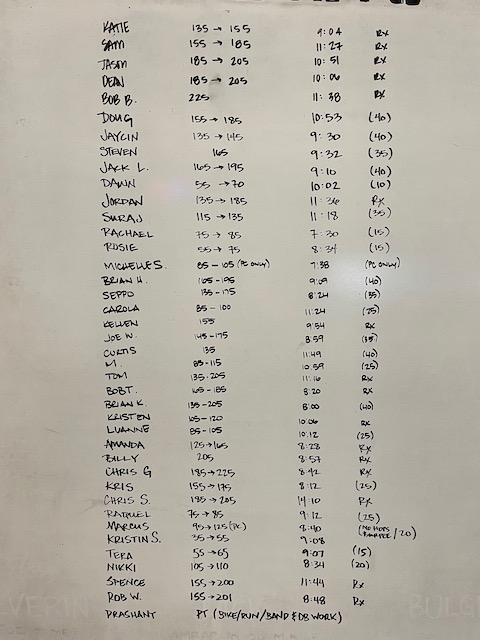 KATIE 135 → 155 9:04 Rx
SAM 155 → 185 11:27 Rx
JASON 185 → 205 10:51 Rx
DEAN 185 → 205 10:06 Rx
BOB B. 225 11:38 Rx
DOUG 155 → 185 10:53 (40)
JAYCIN 135 → 145 9:30 (40)
STEVEN 165 9:32 (35)
JACK L. 165 → 195 9:10 (40)
DAWN 55 → 70 10:02 (10)
JORDAN 135 → 185 11:36 Rx
SURAJ 115 → 135 11:18 (35)
RACHAEL 75 → 85 7:30 (15)
ROSIE 55 → 75 8:34 (15)
MICHELLE S. 85 - 105 (PC ONLY) 7:38 (PC ONLY)
BRIAN H. 165 - 195 9:09 (40)
SEPPO 135 - 175 8:24 (35)
CAROLA 85 - 100 11:24 (25)
KELLEN 155 9:54 Rx
JOE W. 145 - 175 8:59 (35)
CURTIS 135 11:49 (40)
M. 85 - 115 10:59 (25)
TOM 135 - 205 11:16 Rx
BOB T. 165 - 185 8:20 Rx
BRIAN K. 135 - 205 8:00 (40)
KRISTEN 105 - 120 10:06 Rx
LUANNE 85 - 105 10:12 (25)
AMANDA 125 → 165 8:28 Rx
BILLY 205 8:57 Rx
CHRIS G 185 → 225 8:42 Rx
KRIS 155 → 175 8:12 (25)
CHRIS S. 185 → 205 14:10 Rx
RAQUEL 75 → 85 9:12 (25)
MARCUS 95 → 125 (PC) 8:40 (NO HOPS / 20)
KRISTIN S. 35 → 55 9:08
TERA 55 → 65 9:07 (15)
NIKKI 105 → 110 8:34 (20)
SPENCE 155 → 200 11:44 Rx
ROB W. 155 → 201 8:48 Rx
PRASHANT PT (BIKE/RUN/BAND & DB WORK)